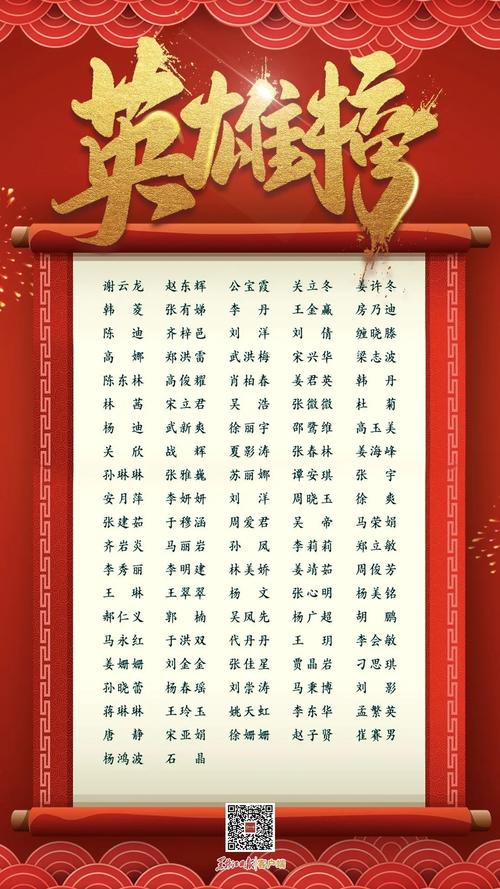 英雄榜
谢云龙 赵东辉 公宝霞 关立冬 姜许冬
韩菱 张有娣 李丹 王金赢 房乃迪
陈迪 齐梓邑 刘洋 刘倩 缠晓滕
高娜 郑洪雷 武洪梅 宋兴华 梁志波
陈东林 高俊耀 肖柏春 姜君英 韩丹
林茜 宋立君 吴浩 张微微 杜菊
杨迪 武新爽 徐丽宇 邵鹭维 高玉美
关欣 战辉 夏影涛 张春林 姜海峰
孙琳琳 张雅巍 苏丽娜 谭安琪 张宇
安月萍 李妍妍 刘洋 周晓玉 徐爽
张建茹 于穆涵 周爱君 吴帝 马荣娟
齐岩炎 马丽岩 孙凤 李莉莉 郑立敏
李秀丽 李明建 林美娇 姜靖茹 周俊芳
王琳 王翠翠 杨文 张心明 杨美铭
郝仁义 郭楠 吴凤先 杨广超 胡鹏
马永红 于洪双 代丹丹 王玥 李会敏
姜姗姗 刘金金 张佳星 贾晶岩 刁思琪
孙晓蕾 杨春瑶 刘崇涛 马秉博 刘影
蒋琳琳 王玲玉 姚天虹 李东华 孟繁英
唐静 宋亚娟 徐姗姗 赵子贤 崔赛男
杨鸿波 石晶
黑龙江日报客户端